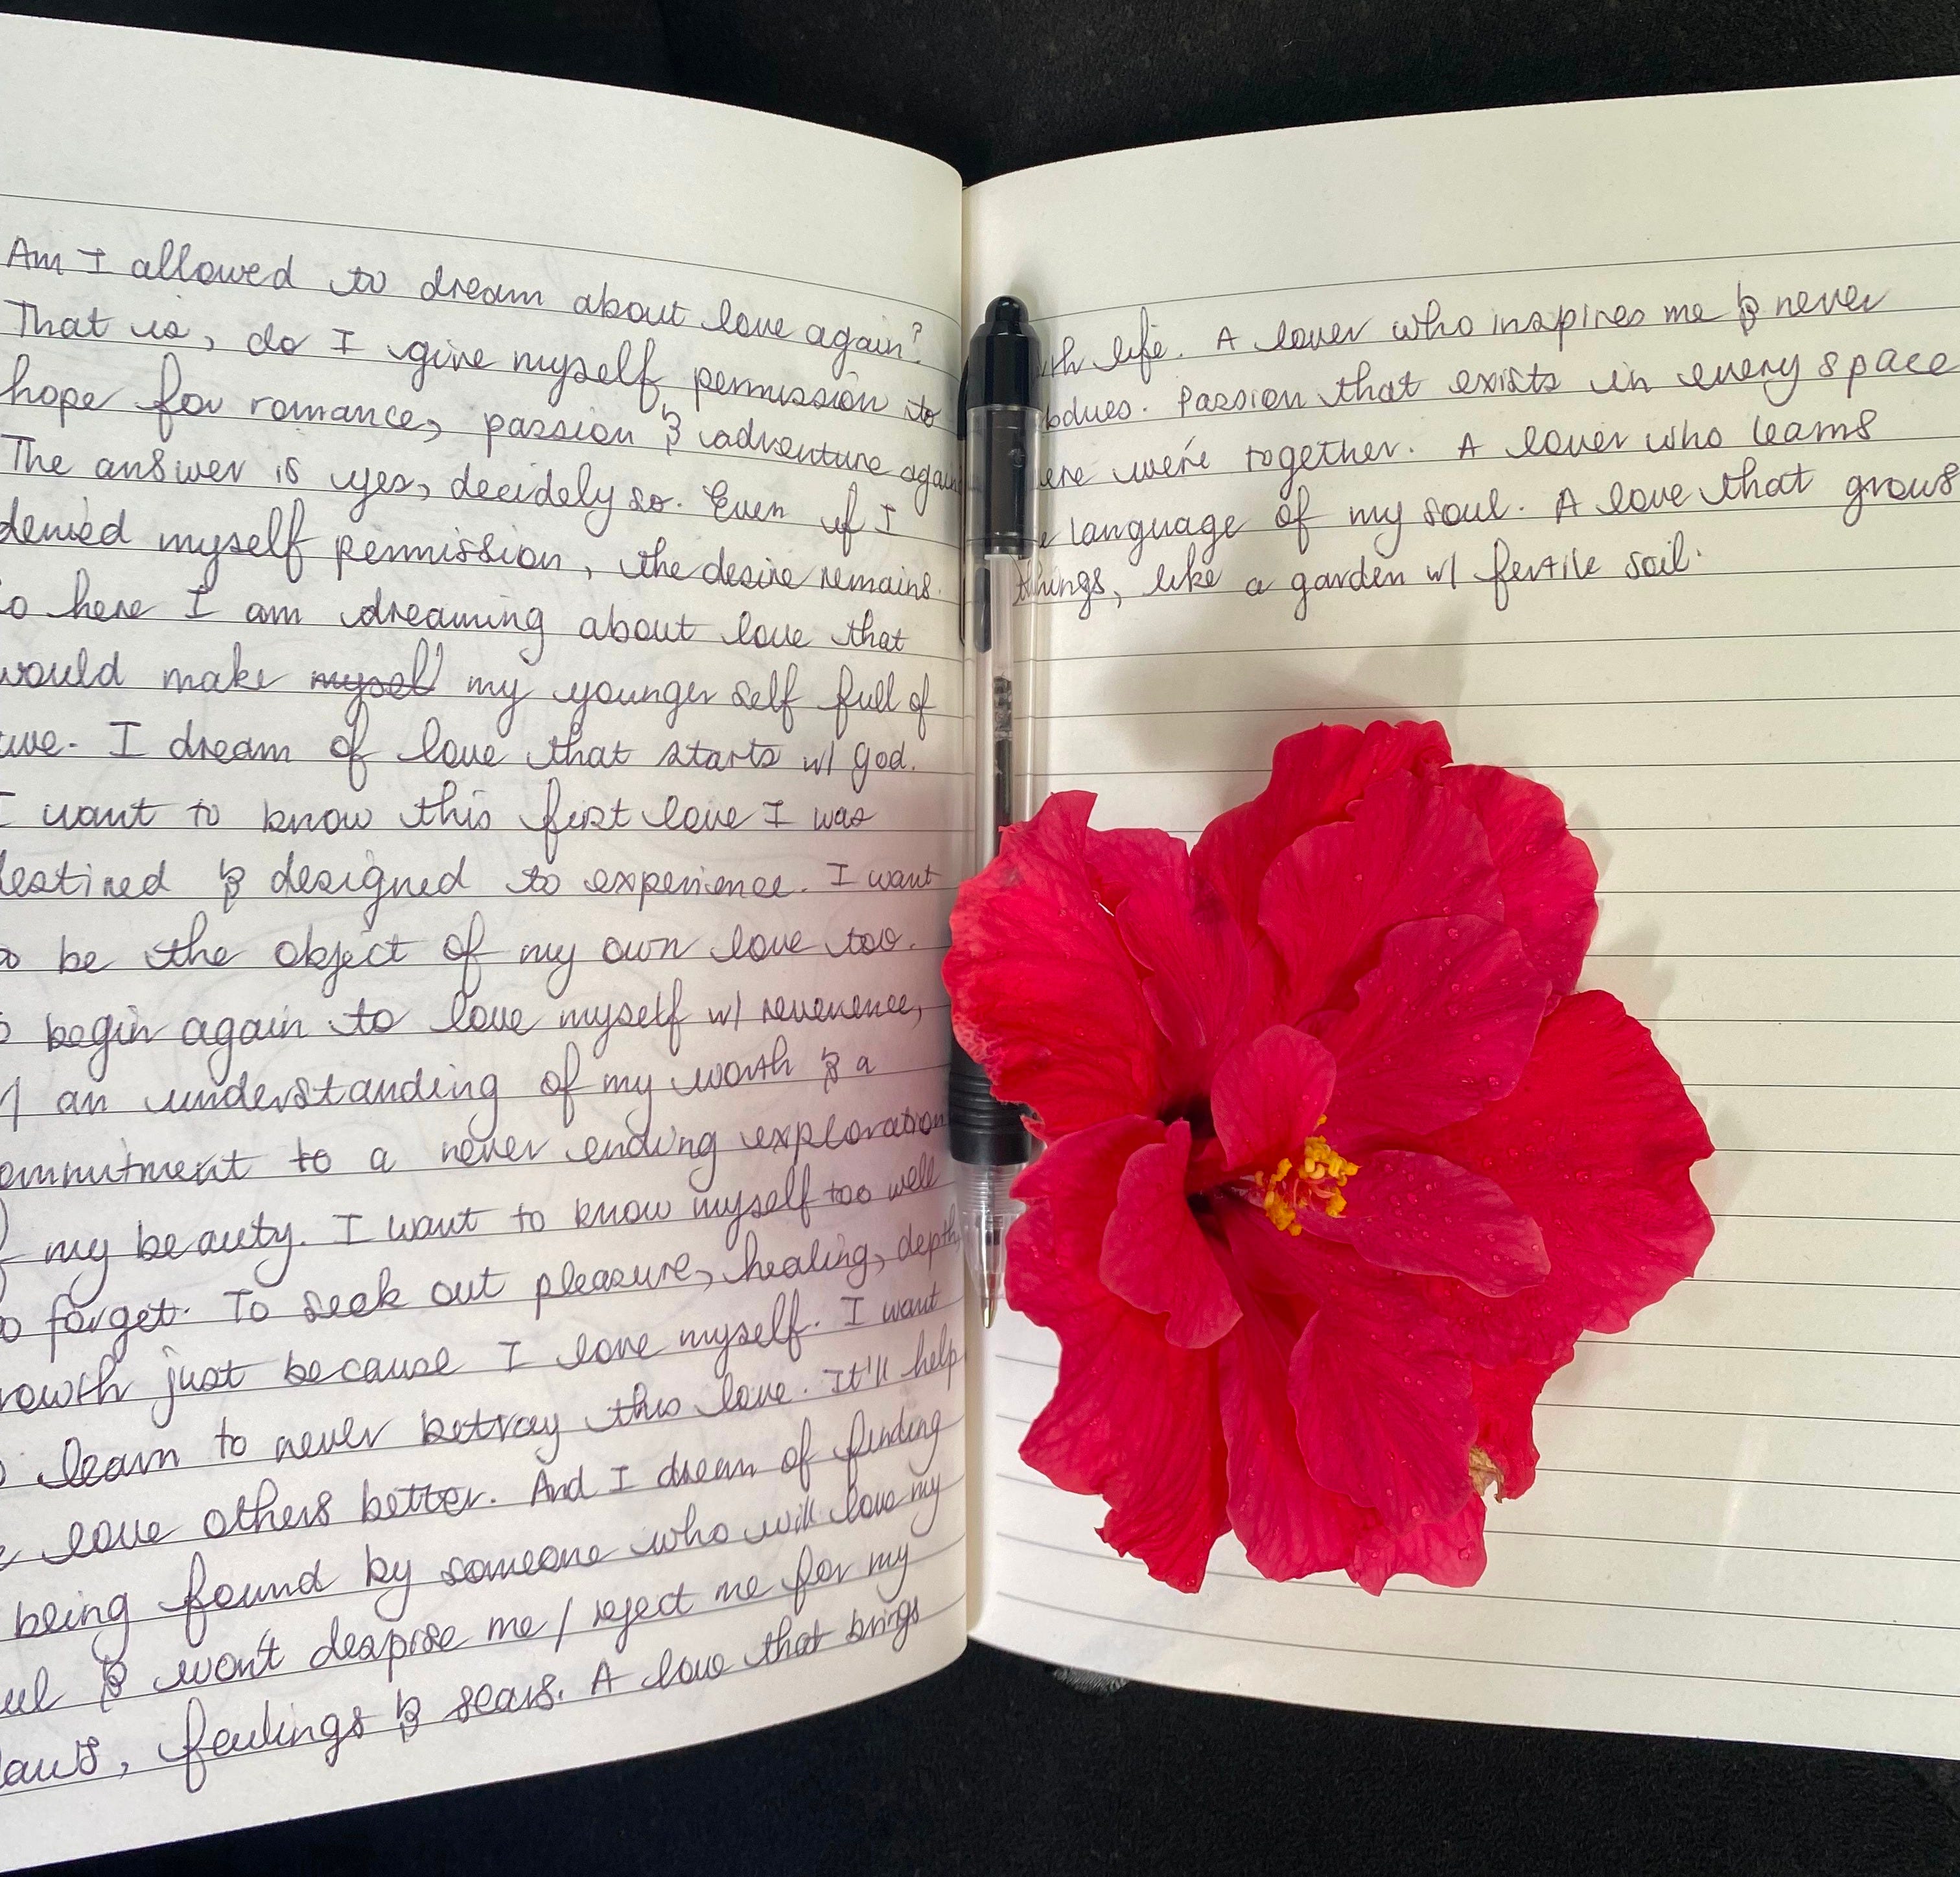 Am I allowed to dream about love again?
That is, do I give myself permission to
hope for romance, passion & adventure again
The answer is yes, decidely so. Even if I
denied myself permission, the desire remains.
o here I am dreaming about love that
would make mysel my younger self full of
I dream of love that starts w/ God.
I want to know this first love I was
destined & designed to experience. I want
o be the object of my own love too.
o begin again to love myself w/ reverence,
/ an understanding of my worth & a
ommitment to a never ending exploration
f my beauty. I want to know myself too well
o forget. To seek out pleasure, healing, depth,
rowth just because I love myself. I want
o learn to never betray this love. It'll help
e love others better. And I dream of finding
being found by someone who will love my
ul & won't despise me / reject me for my
laws, feelings & scars. A love that brings
th life. A lover who inspires me & never
bdues. Passion that exists in every space
ere we're together. A lover who learns
e language of my soul. A love that grows
things, like a garden w/ fertile soil.